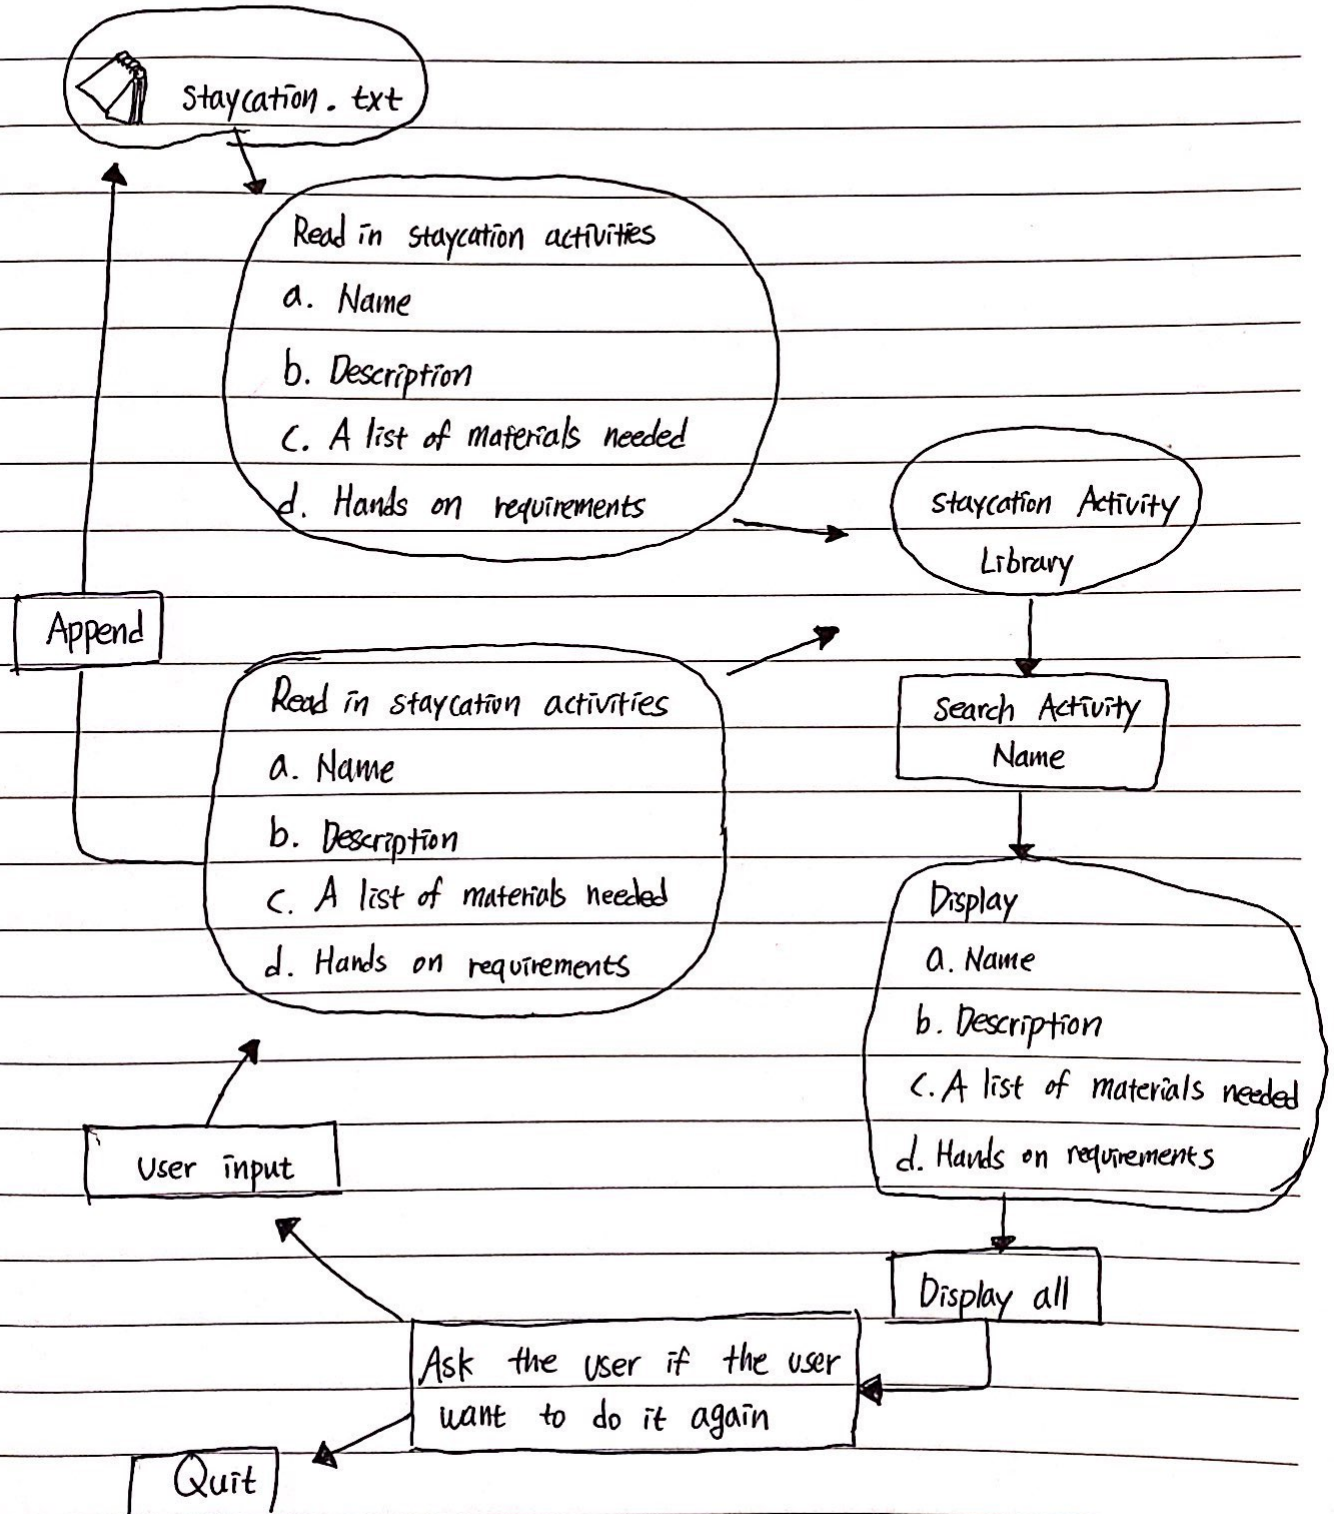 Staycation.txt
Read in staycation activities
a. Name
b. Description
c. A list of materials needed
d. Hands on requirements
Staycation Activity
Library
Append
Read in staycation activities
a. Name
b. Description
c. A list of materials needed
d. Hands on requirements
Search Activity
Name
Display
a. Name
b. Description
c. A list of materials needed
d. Hands on requirements
User input
Display all
Ask the user if the user
want to do it again
Quit